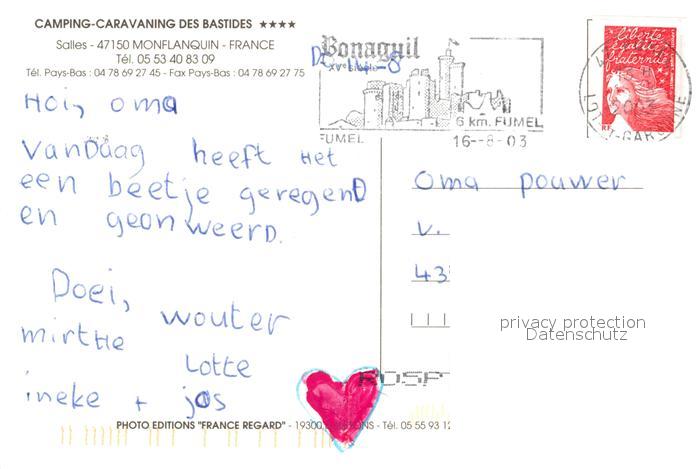 CAMPING-CARAVANING DES BASTIDES ★★★★
Salles - 47150 MONFLANQUIN - FRANCE
Tél. 05 53 40 83 09
Tél. Pays-Bas : 04 78 69 27 45 - Fax Pays-Bas : 04 78 69 27 75
Hoi, oma
Vandaag heeft het
een beetje geregend
en geonweerd.
Doei, wouter
mirthe
Lotte
ineke + jos
Bonaguil
XVe siècle
6 km. FUMEL
FUMEL
16--8-03
liberté
égalité
fraternité
RF
LOT-
GARONNE
Oma pouwer
v.
43
privacy protection
Datenschutz
PHOTO EDITIONS "FRANCE REGARD" - 19300
Tél. 05 55 93 12